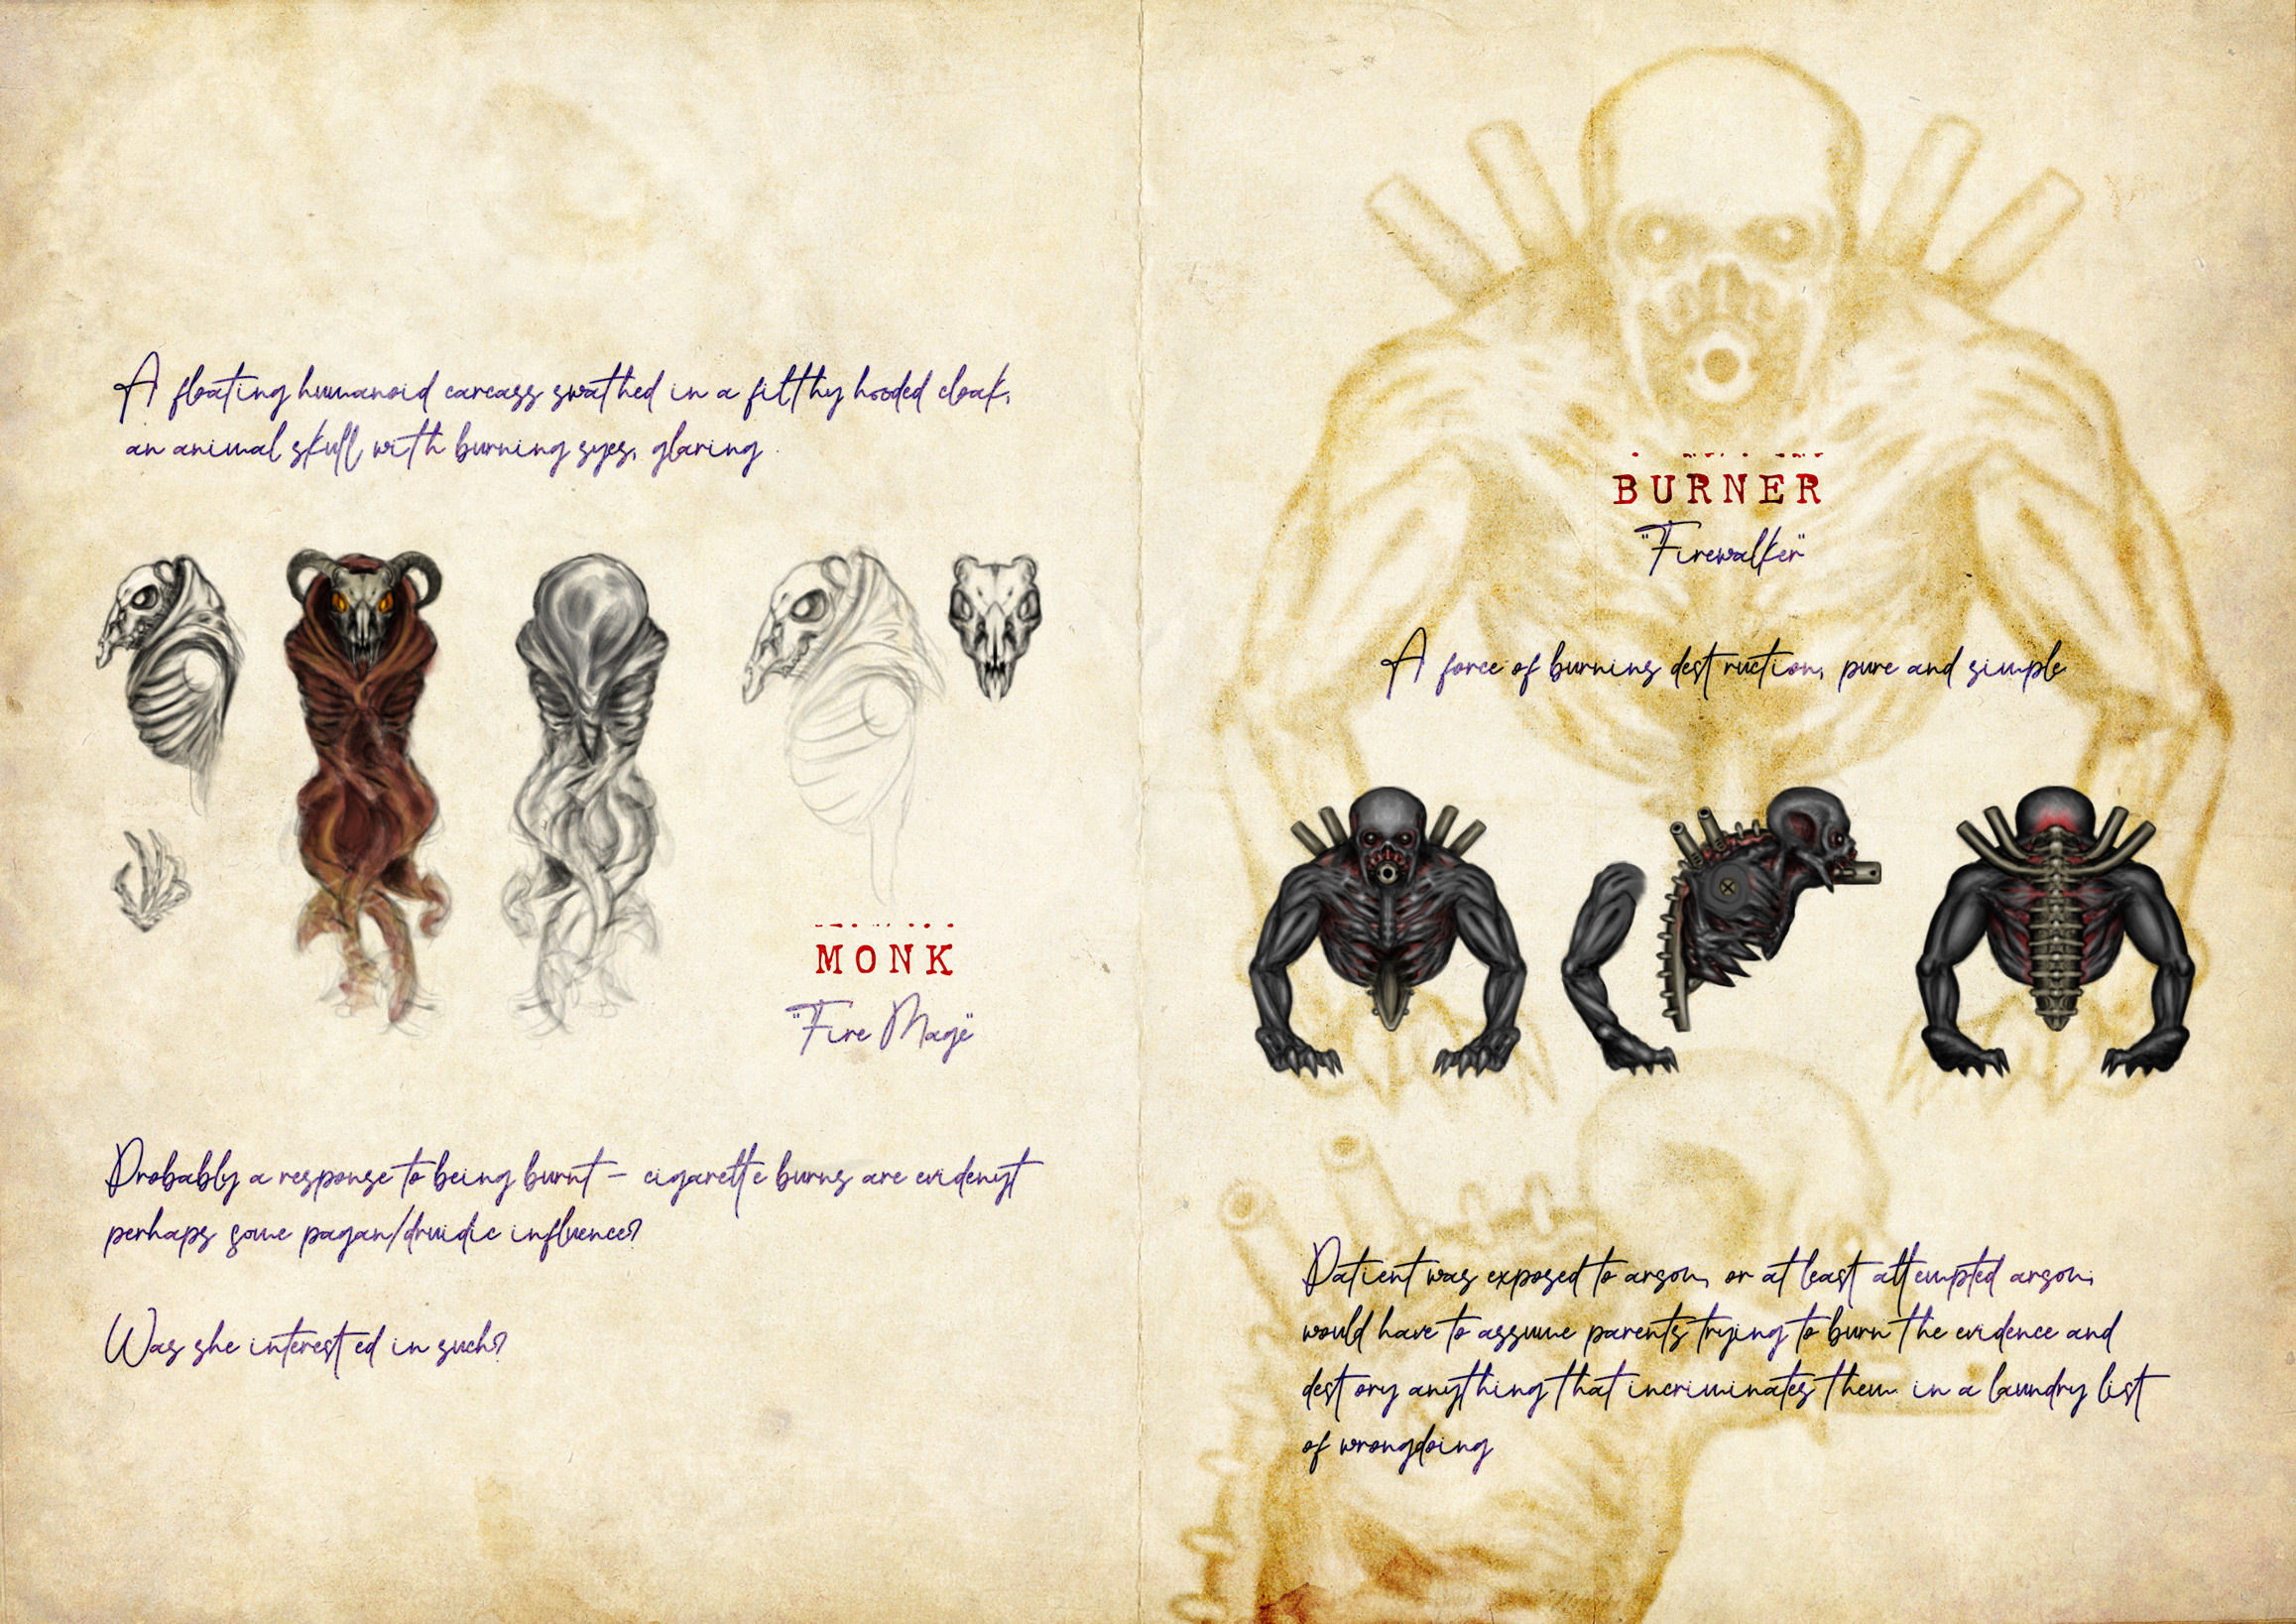 A floating humanoid carcass swathed in a filthy hooded cloak,
an animal skull with burning syes, glaring
MONK
"Fire Mage"
Probably a response to being burnt - cigarette burns are evidenyt
perhaps some pagan/druidic influence?
Was she interested in such?
BURNER
"Firewalker"
A force of burning destruction, pure and simple
Patient was exposed to arson, or at least attempted arson,
would have to assume parents trying to burn the evidence and
destory anything that incriminates them in a laundry list
of wrongdoing